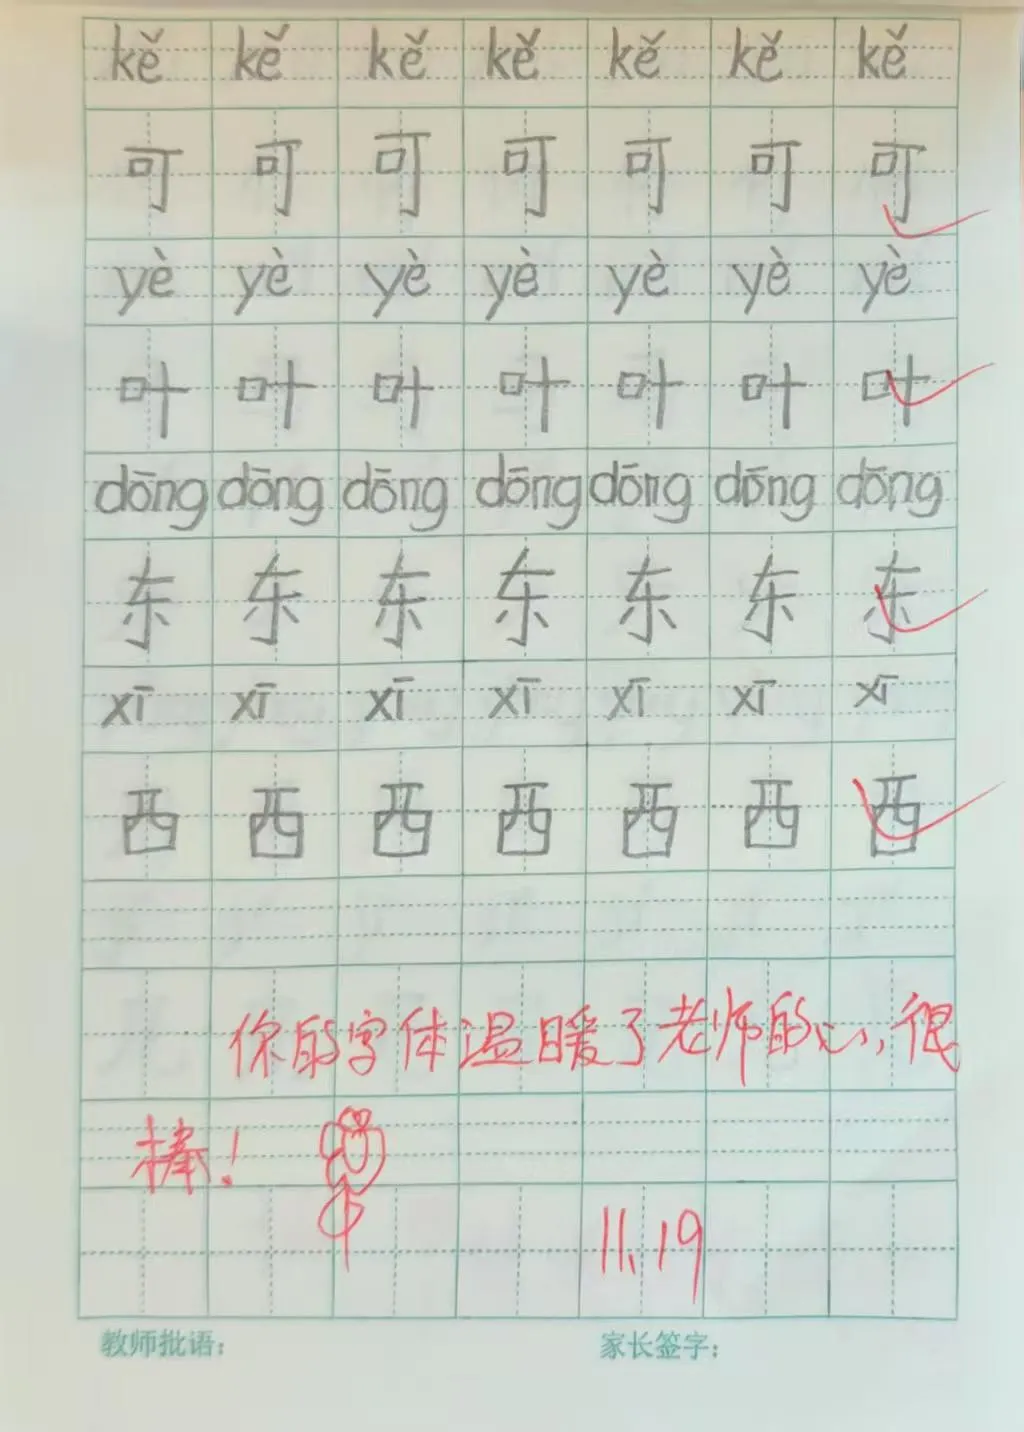 kě kě kě kě kě kě kě
可 可 可 可 可 可 可
yè yè yè yè yè yè yè
叶 叶 叶 叶 叶 叶 叶
dōng dōng dōng dōng dōng dōng dōng
东 东 东 东 东 东 东
xī xī xī xī xī xī xī
西 西 西 西 西 西 西
你的字体温暖了老师的心,很
棒!
11.19
教师批语: 家长签字: